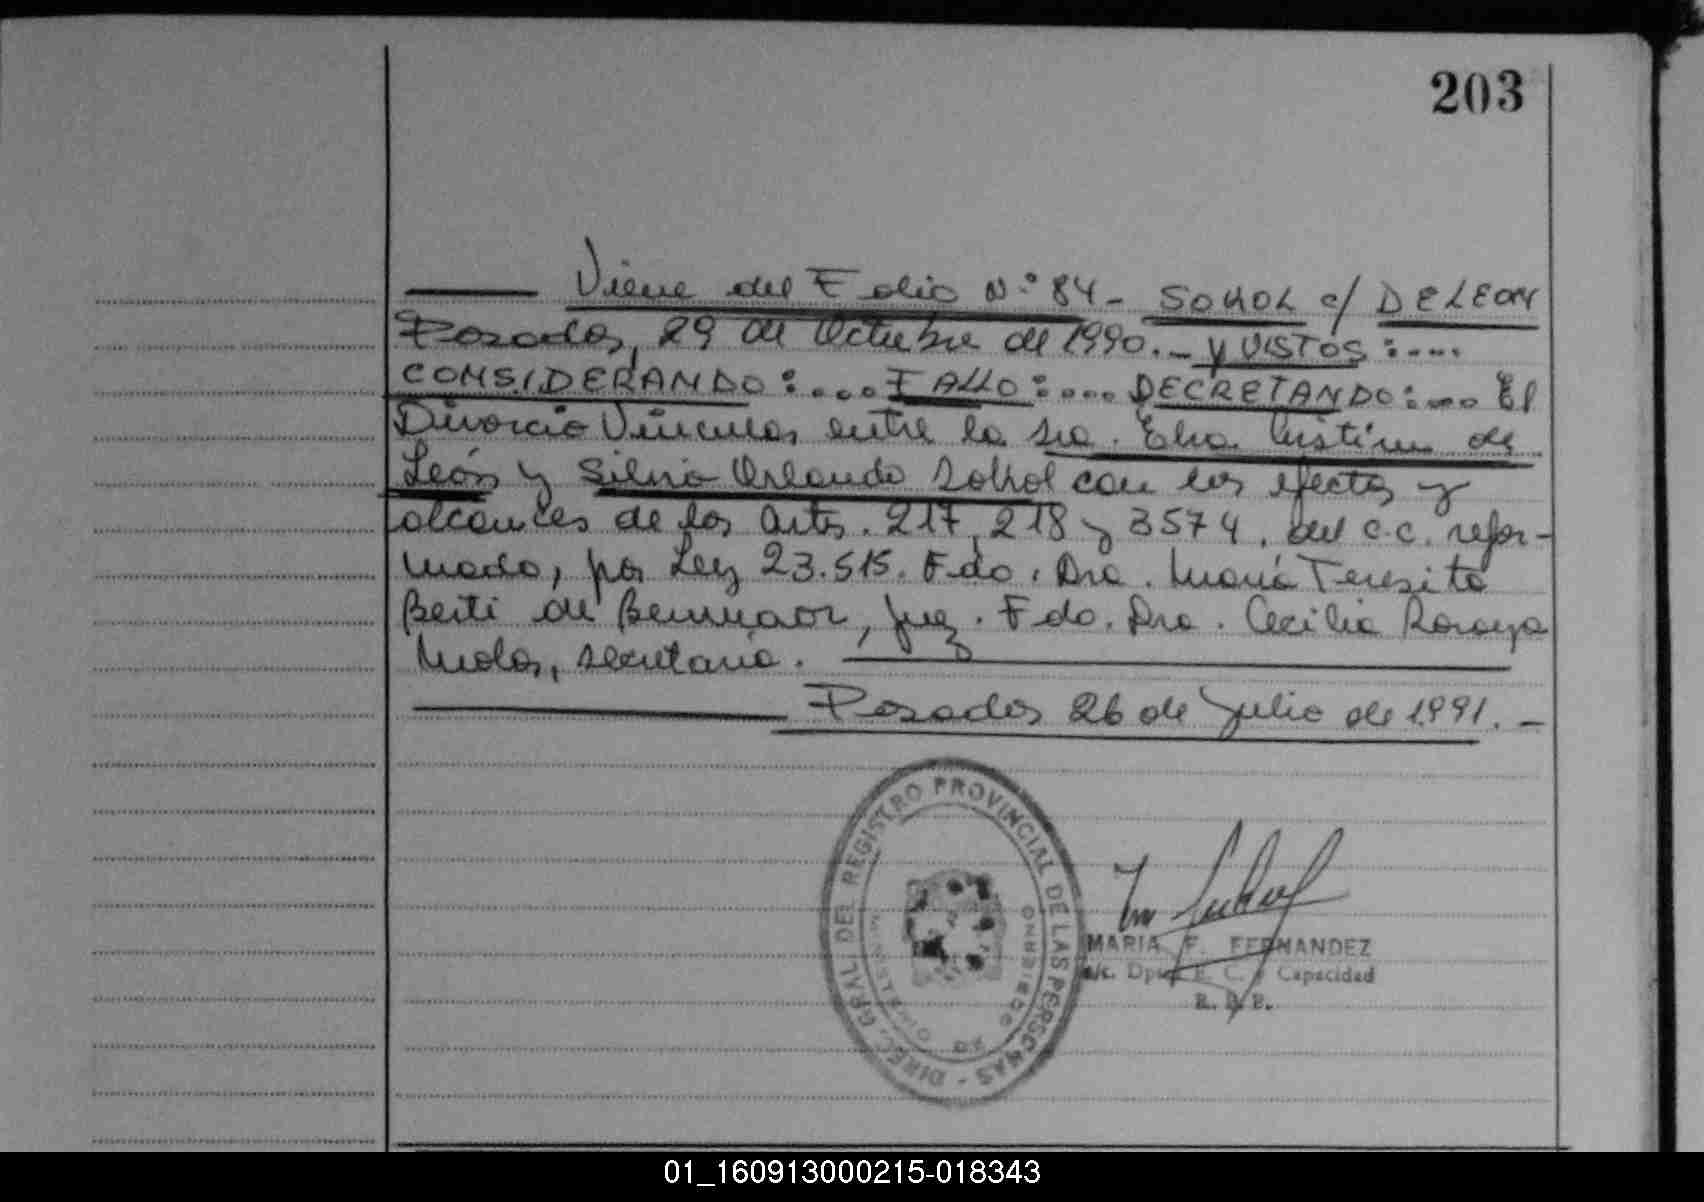 203
Viene del Folio N° 84 - SOKOL c/ DE LEON
Posadas, 29 de Octubre de 1990. - y VISTOS: ....
CONSIDERANDO: .... FALLO: .... DECRETANDO: .... El
Divorcio Vincular entre la sra. Elva Cristina de
León y Silvio Orlando Sokol con los efectos y
alcances de los arts. 217, 218 y 3574, del C.C. refor-
mado, por Ley 23.515. Fdo. Dra. María Teresita
Berti de, Juez. Fdo. Dra. Cecilia
secretaria.
Posadas 26 de Julio de 1991. -
DIREC. GRAL. DEL REGISTRO PROVINCIAL DE LAS PERSONAS -
MARIA F. FERNANDEZ
a/c. Dpto. E. C. y Capacidad
R. P. P.
01_160913000215-018343